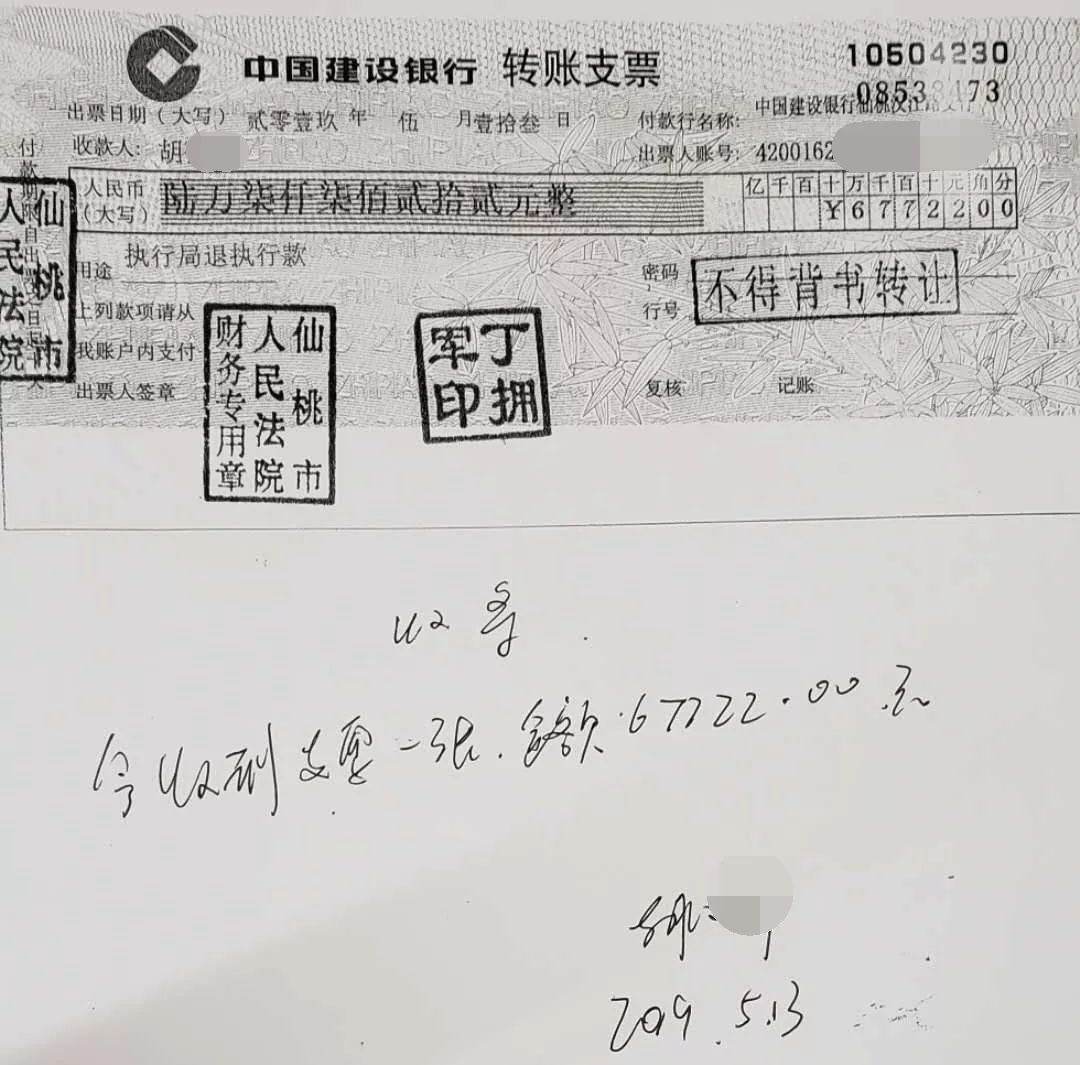 中国建设银行 转账支票
10504230
出票日期（大写） 贰零壹玖 年 伍 月 壹拾叁 日
付款行名称：中国建设银行仙桃
收款人：胡
出票人账号：4200162
人民币（大写） 陆万柒仟柒佰贰拾贰元整
亿 千 百 十 万 千 百 十 元 角 分
¥ 6 7 7 2 2 0 0
用途 执行局退执行款
密码
行号
不得背书转让
上列款项请从
我账户内支付
出票人签章
复核
记账
仙桃市
人民法院
仙桃市
人民法院
财务专用章
丁拥
军印
收条
今收到支票一张，金额：67722.00元
胡
2019.5.13